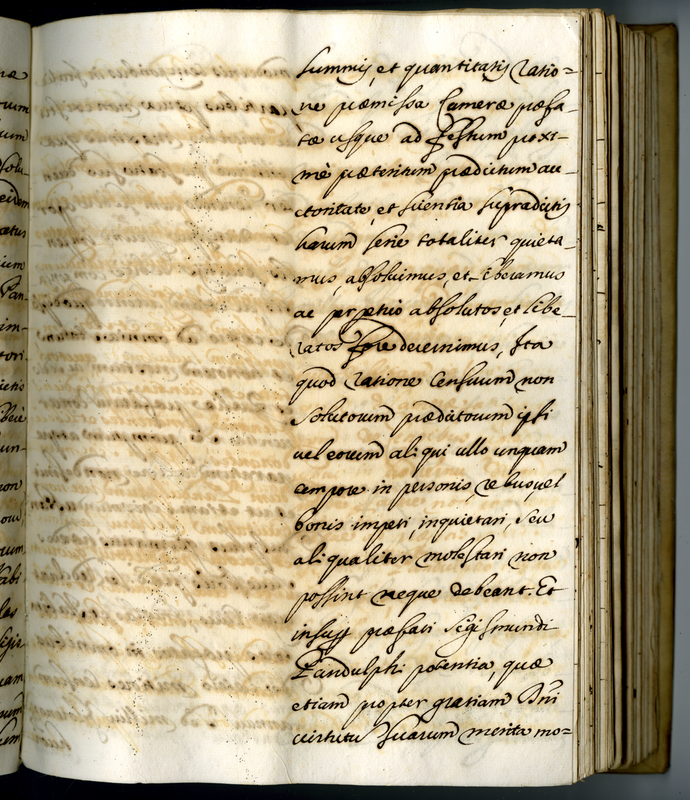 summis, et quantitatis ratio=
ne præmissa Cameræ præfa=
tæ usque ad festum proxi=
mè præteritum prædictum au=
ctoritate, et scientia supradictis
harum serie totaliter quieta=
mus, absoluimus, et liberamus
ac perpetuo absolutos, et libe=
ratos fore decernimus, Ita
quod ratione Censuum non
solutorum prædictorum ipsi
uel eorum aliqui ullo unquam
tempore in personis, rebus, uel
bonis impeti, inquietari, seu
aliqualiter molestari non
possint neque debeant. Et
insup præfati Segismundi
Pandulphi potentia, quæ
etiam propter gratiam Dni
uirtutu suarum merita mo=